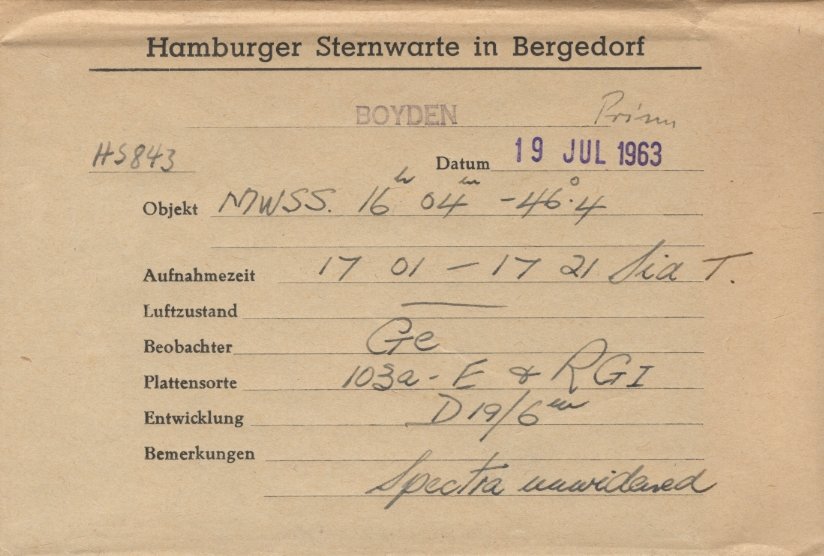 Hamburger Sternwarte in Bergedorf
BOYDEN Prism
HS843 Datum 19 JUL 1963
Objekt MWSS. 16h 04m -46°.4
Aufnahmezeit 17 01 – 17 21 Sid T.
Luftzustand —
Beobachter Ge
Plattensorte 103a-E & RG1
Entwicklung D19/6m
Bemerkungen
Spectra unwidened